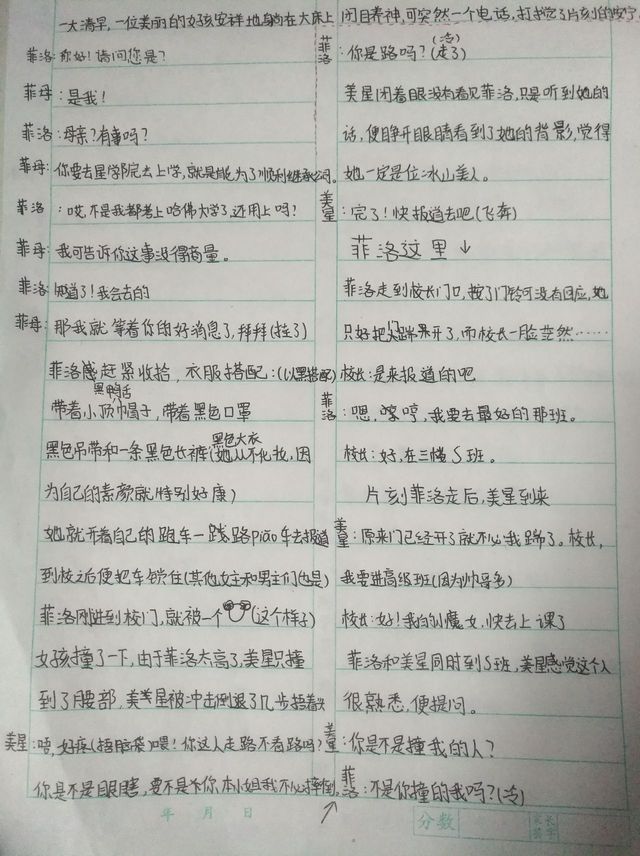 一大清早,一位美丽的女孩安祥地躺在大床上闭目养神,可突然一个电话,打扰了片刻的安宁
菲洛:你好!请问您是?
菲母:是我!
菲洛:母亲?有事吗?
菲母:你要去星学院去上学,就是能为了顺利继承公司。
菲洛:哎,不是我都考上哈佛大学了,还用上吗?
菲母:我可告诉你这事没得商量。
菲洛:知道了!我会去的
菲母:那我就等着你的好消息了,拜拜(挂了)
菲洛感赶紧收拾,衣服搭配:(以黑搭配)
带着小顶巾帽子,带着黑色口罩
黑鸭舌
黑色吊带和一条黑色长裤(她从不化妆,因
黑色大衣
为自己的素颜就特别好康)
她就开着自己的跑车一践路piao车去报道
到校之后便把车锁住(其他女主和男主们也是)
菲洛刚进到校门,就被一个(这个样子)
女孩撞了一下,由于菲洛太高了,美星只撞
到了腰部,美星被冲击倒退了几步捂着头
美星:唔,好疼(捂脑袋)喂!你这人走路不看路吗?
你是不是眼瞎,要不是你本小姐我不必摔倒。
菲洛:你是路吗?(走了)
(冷)
美星闭着眼没有看见菲洛,只是听到她的
话,便睁开眼睛看到了她的背影,觉得
她一定是位冰山美人。
美星:完了!快报道去吧(飞奔)
菲洛这里↓
菲洛走到校长门口,按了门铃可没有回应,她
只好把门踹开了,而校长一脸茫然……
校长:是来报道的吧
菲洛:嗯,哼,我要去最好的那班。
校长:好,在三楼S班。
片刻菲洛走后,美星到来
美星:原来门已经开了就不必我踹了。校长,
我要进高级班(因为帅哥多)
校长:好!我的小魔女,快去上课了
菲洛和美星同时到S班,美星感觉这个人
很熟悉,便提问。
美星:你是不是撞我的人?
菲洛:不是你撞的我吗?(冷)
年 月 日
分数
家长签字